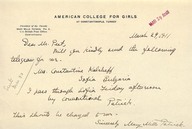 AMERICAN COLLEGE FOR GIRLS
AT CONSTANTINOPLE, TURKEY
March 29, 1911
Dear Mr. Peet,
Will you kindly send the following
telegram for me.
Mrs Constantine
Sofia Bulgaria
I pass through Sofia Sunday afternoon
by conventional
Patrick
This should be charged to me.
Sincerely, Mary Mills Patrick